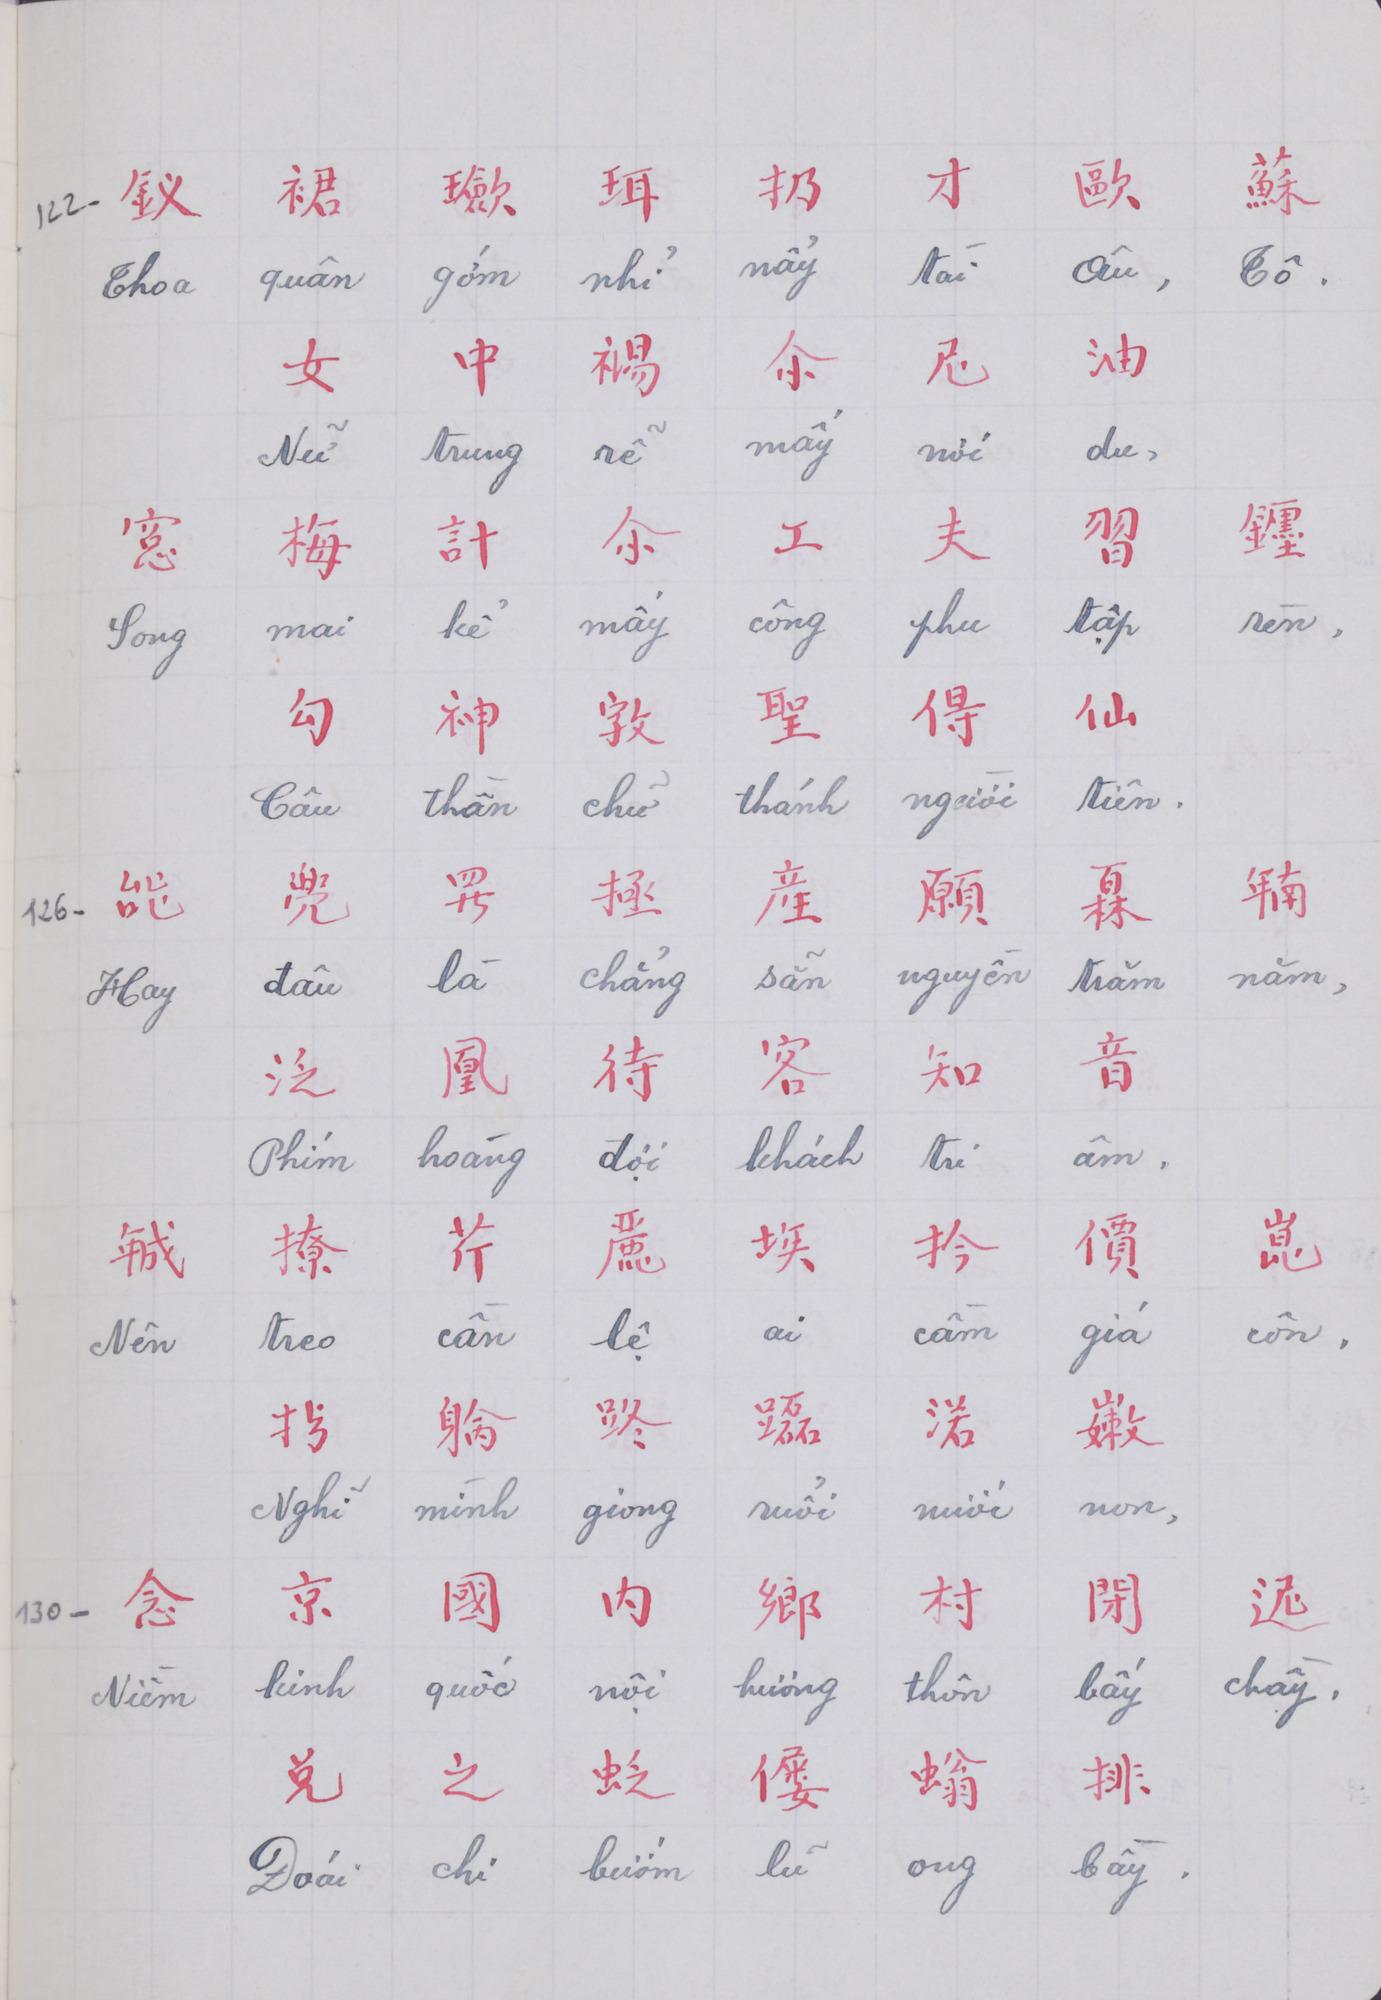 122- 釵 裙 㺌 珥 扔 才 歐 蘇
Thoa quân gớm nhỉ nẩy tài Âu, Tô.
女 中 裼 尒 尼 油
Nữ trung rễ mấy nơi du,
窓 梅 計 尒 工 夫 習 鏗
Song mai kể mấy công phu tập rèn,
勾 神 𡦂 聖 得 仙
Câu thần chữ thánh người tiên.
126- 能 兜 𱺵 拯 産 願 𤾓 𢆥
Hay đâu là chẳng sẵn nguyền trăm năm,
泛 凰 待 客 知 音
Phím hoàng đợi khách tri âm.
𢧚 撩 芹 麗 埃 扲 價 崑
Nên treo cần lệ ai cầm giá côn,
𢪀 躺 跭 𨇒 渃 嫩
Nghĩ mình giong ruổi nước non,
130- 念 京 國 内 鄉 村 閉 迡
Niềm kinh quốc nội hương thôn bấy chầy,
兑 之 𧊉 僂 螉 排
Đoái chi bướm lũ ong bầy.